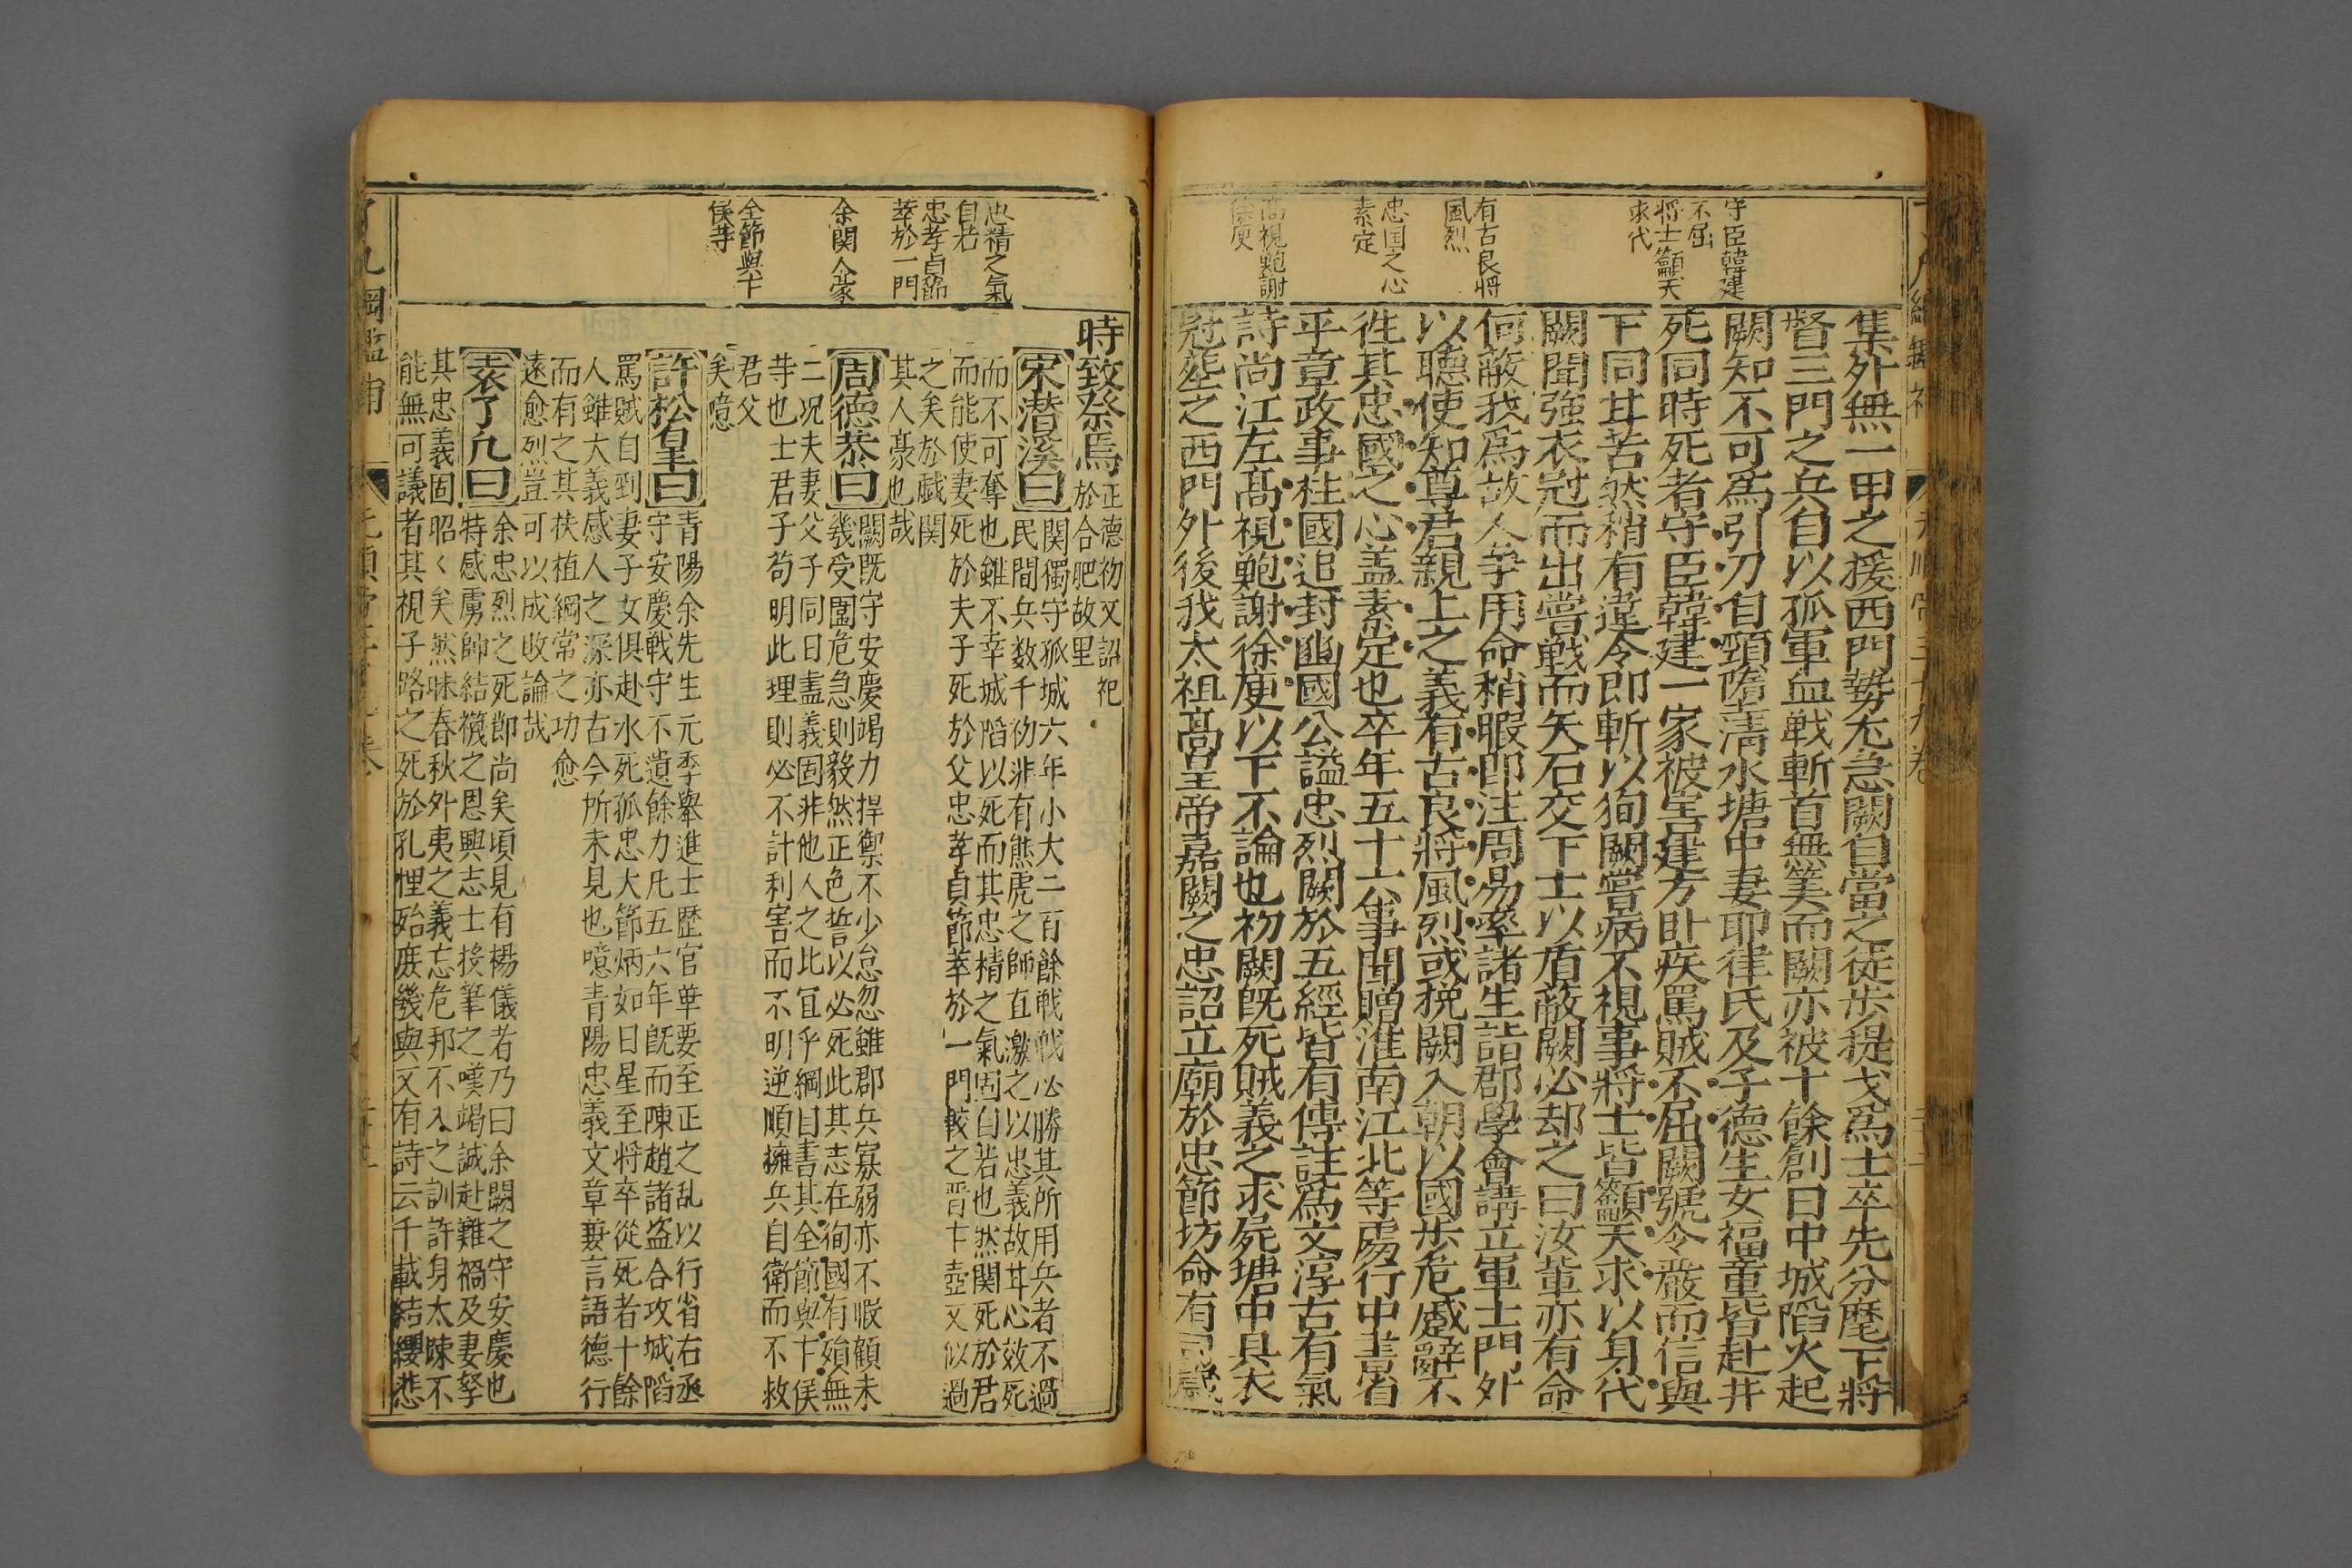 守臣韓建
不屈
將士籲天
求代
有古良將
風烈
忠国之心
素定
高視鮑謝
徐庾
集外無一甲之援西門勢尤急闕自當之徒步提戈爲士卒先分麾下將
督三門之兵自以孤軍血戦斬首無筭而闕亦被十餘創日中城陷火起
闕知不可爲引刀自頸墮清水塘中妻耶律氏及子德生女福童皆赴井
死同時死者守臣韓建一家被害建方卧疾罵賊不屈闕號令嚴而信與
下同甘苦然稍有違令即斬以狥闕嘗病不視事將士皆籲天求以身代
闕聞強衣冠而出嘗戰而矢石交下士以盾蔽闕必却之曰汝輩亦有命
何蔽我爲故人争用命稍暇即注周易率諸生詣郡學會講立軍士門外
以聽使知尊君親上之義有古良將風烈或挽闕入朝以國步危蹙辭不
徃其忠國之心盖素定也卒年五十六事聞贈淮南江北等處行中書省
平章政事柱國追封豳國公謚忠烈闕於五經皆有傳註爲文淳古有氣
詩尚江左高視鮑謝徐庾以下不論也初闕旣死賊義之求屍塘中具衣
冠塟之西門外後我太祖高皇帝嘉闕之忠詔立廟於忠節坊命有司歲
忠精之氣
自若
忠孝貞節
萃於一門
余関人豪
全節與卞
侯等
時致祭焉
正德初又詔祀
於合肥故里
宋潜溪曰
関獨守孤城六年小大二百餘戰戰必勝其所用兵者不過
民間兵数千初非有熊虎之師直激之以忠義故甘心效死
而不可奪也雖不幸城陷以死而其忠精之氣固自若也然関死於君
而能使妻死於夫子死於父忠孝貞節萃於一門較之晋卞壺又似過
之矣於戯関
其人豪也哉
周德恭曰
闕既守安慶竭力捍禦不少怠忽雖郡兵寡弱亦不暇顧未
幾受圍危急則毅然正色誓以必死此其志在徇國有殞無
二况夫妻父子同日盡義固非他人之比宜乎綱目書其全節與卞侯
等也士君子苟明此理則必不計利害而不明逆順擁兵自衛而不救
君父
矣噫
許松皇曰
青陽余先生元季舉進士歷官華要至正之乱以行省右丞
守安慶戰守不遺餘力凡五六年旣而陳趙諸盗合攻城陷
罵賊自刭妻子女俱赴水死孤忠大節炳如日星至将卒從死者十餘
人雖大義感人之深亦古今所未見也噫青陽忠義文章兼言語德行
而有之其扶植綱常之功愈
遠愈烈豈可以成敗論哉
袁了凡曰
余忠烈之死節尚矣頃見有楊儀者乃曰余闕之守安慶也
特感虜帥結襪之恩興志士投筆之嘆竭誠赴難禍及妻孥
其忠義固昭く矣然昧春秋外夷之義忘危邦不入之訓許身太疎不
能無可議者其視子路之死於孔悝殆庶幾與又有詩云千載結纓悲